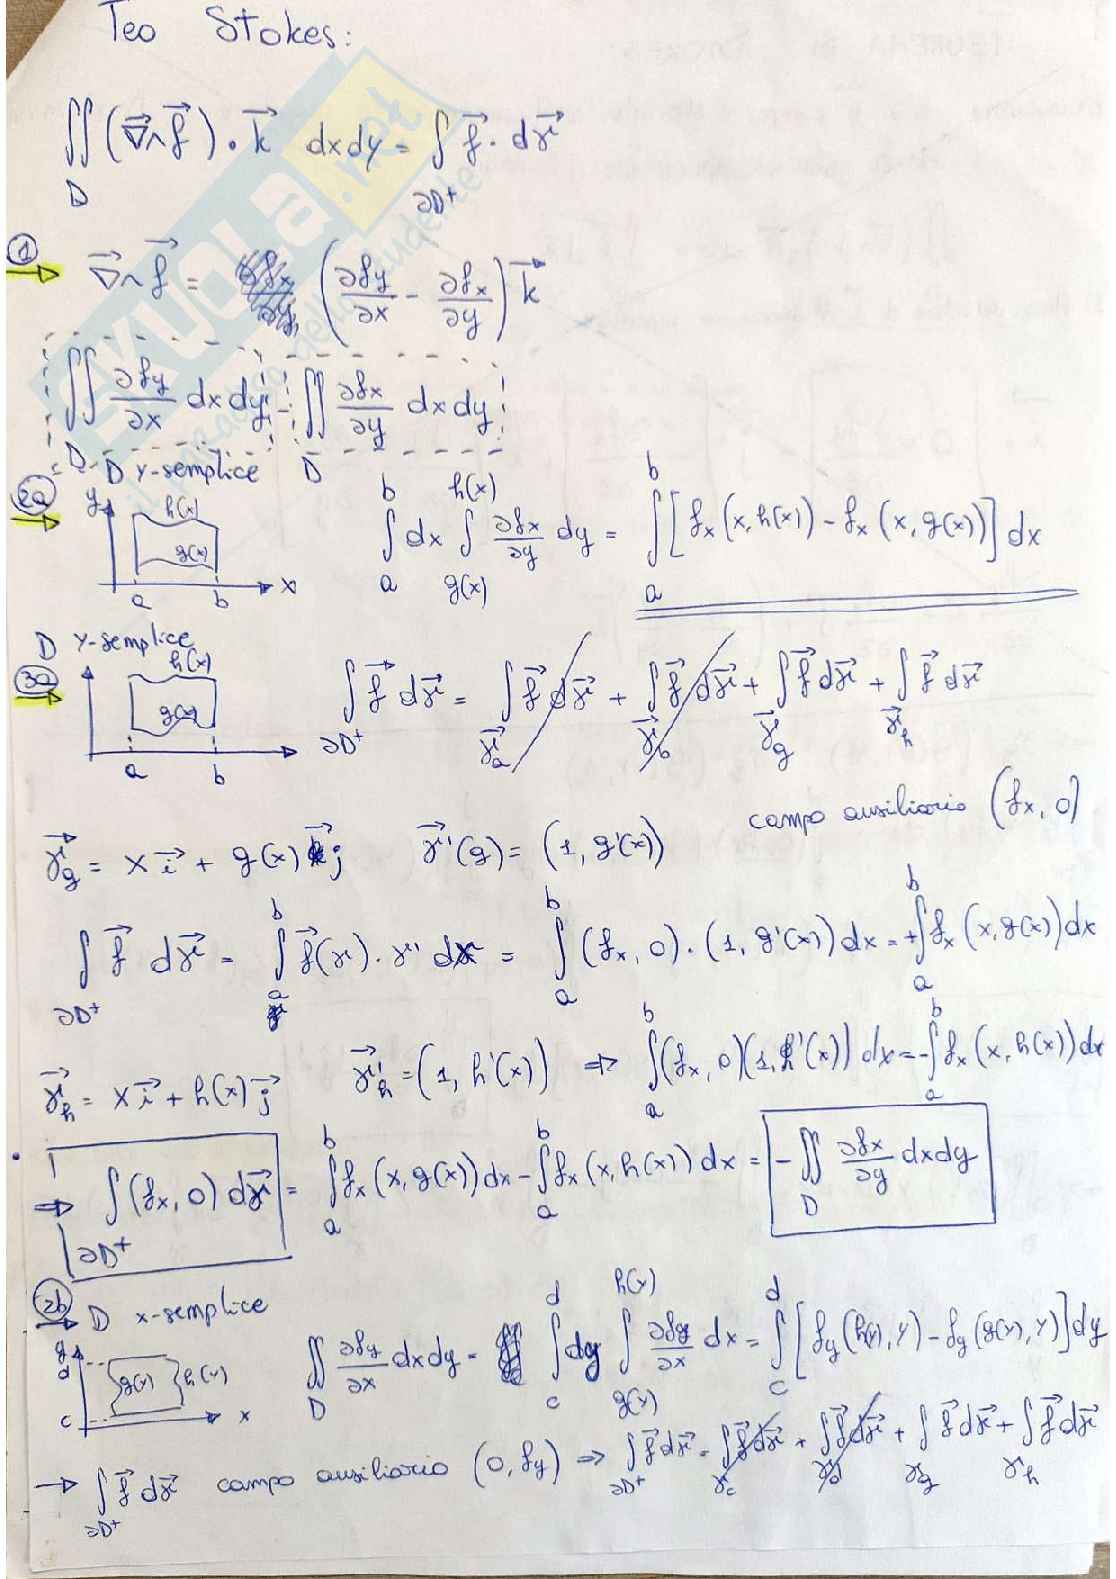 Teo Stokes:
∬_D (∇⃗∧f⃗)·k⃗ dxdy = ∫_∂D⁺ f⃗·dγ⃗
① → ∇⃗∧f⃗ = (∂fy/∂x - ∂fx/∂y) k⃗
∬_D ∂fy/∂x dxdy - ∬_D ∂fx/∂y dxdy
②a → D y-semplice
y h(x) g(x) a b x
∫_a^b dx ∫_g(x)^h(x) ∂fx/∂y dy = ∫_a^b [fx(x,h(x)) - fx(x,g(x))] dx
D y-semplice
③a → h(x) g(x) a b
∫_∂D⁺ f⃗ dγ⃗ = ∫_γ⃗a f⃗ dγ⃗ + ∫_γ⃗b f⃗ dγ⃗ + ∫_γ⃗g f⃗ dγ⃗ + ∫_γ⃗h f⃗ dγ⃗
campo ausiliario (fx, 0)
γ⃗g = x i⃗ + g(x) j⃗ γ⃗'(g) = (1, g'(x))
∫_∂D⁺ f⃗ dγ⃗ = ∫_a^b f⃗(γ)·γ' dx = ∫_a^b (fx, 0)·(1, g'(x)) dx = +∫_a^b fx(x,g(x)) dx
γ⃗h = x i⃗ + h(x) j⃗ γ⃗'h = (1, h'(x)) ⇒ ∫_a^b (fx, 0)(1, h'(x)) dx = -∫_a^b fx(x,h(x)) dx
⇒ ∫_∂D⁺ (fx, 0) dγ⃗ = ∫_a^b fx(x,g(x)) dx - ∫_a^b fx(x,h(x)) dx = -∬_D ∂fx/∂y dxdy
②b → D x-semplice
y d c g(y) h(y) x
∬_D ∂fy/∂x dxdy = ∫_c^d dy ∫_g(y)^h(y) ∂fy/∂x dx = ∫_c^d [fy(h(y),y) - fy(g(y),y)] dy
→ ∫_∂D⁺ f⃗ dγ⃗ campo ausiliario (0, fy) ⇒ ∫_∂D⁺ f⃗ dγ⃗ = ∫_γc f⃗ dγ⃗ + ∫_γd f⃗ dγ⃗ + ∫_γg f⃗ dγ⃗ + ∫_γh f⃗ dγ⃗
skuola.net